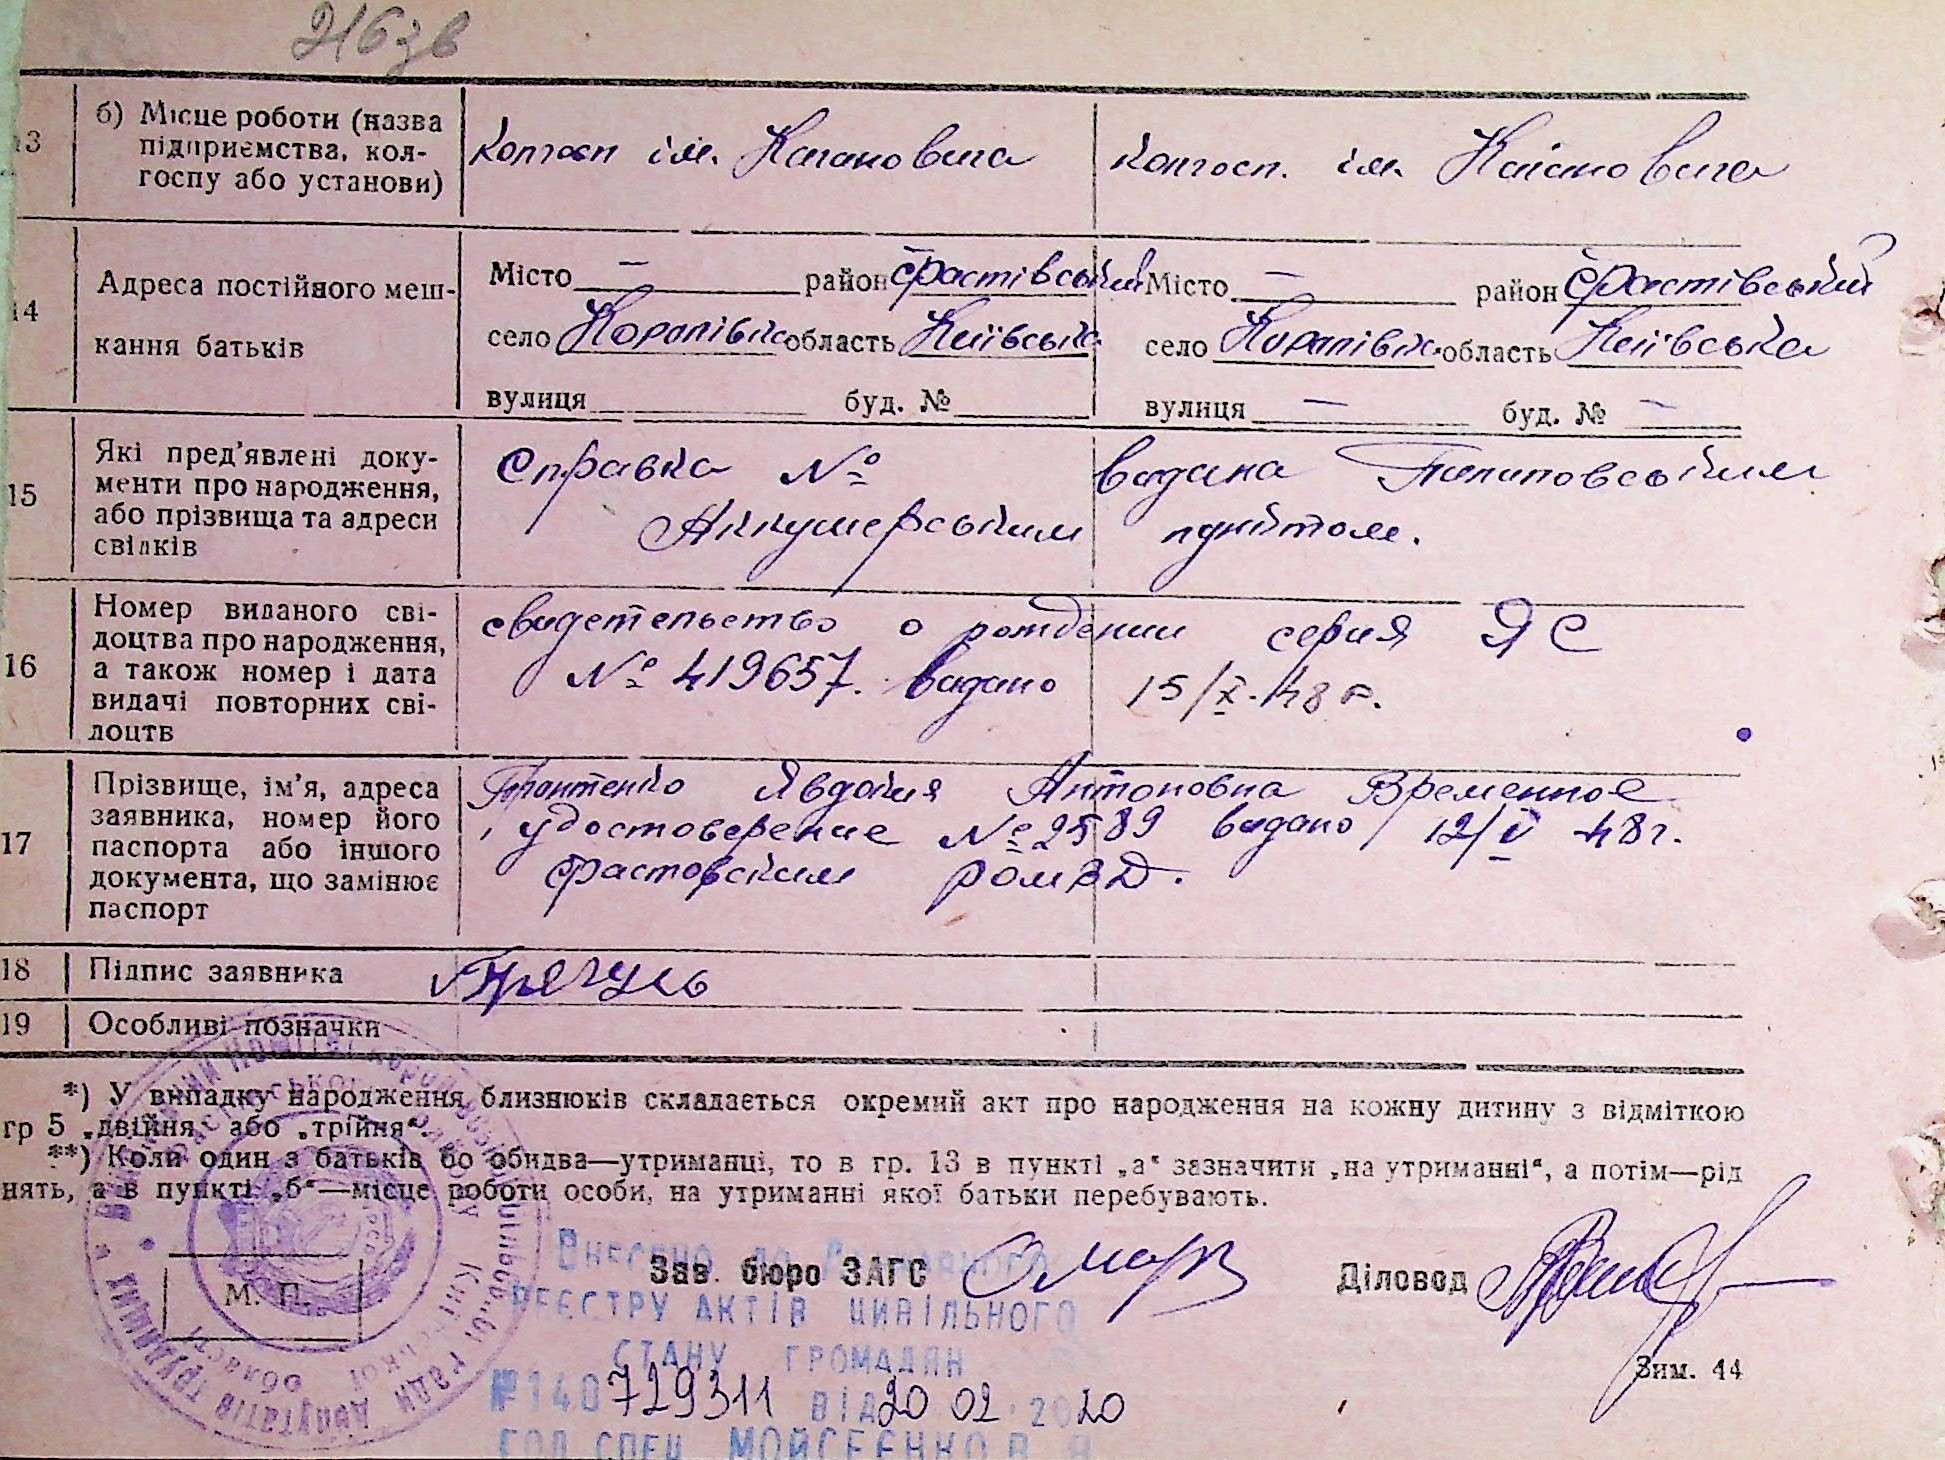 216 зв
13 б) Місце роботи (назва підприємства, колгоспу або установи) Колгосп ім. Кагановича Колгосп. ім. Кагановича
14 Адреса постійного мешкання батьків
Місто — район Фастівський Місто — район Фастівський
село область Київська село область Київська
вулиця буд. № вулиця — буд. № —
15 Які пред'явлені документи про народження, або прізвища та адреси свідків
Справка № видана
Аккушерським пунктом.
16 Номер виданого свідоцтва про народження, а також номер і дата видачі повторних свідоцтв
свидетельство о рождении серия ЯС
№ 419657. видано 15/X-48 г.
17 Прізвище, ім'я, адреса заявника, номер його паспорта або іншого документа, що замінює паспорт
Явдокия Антоновна Временное
удостоверение № 2589 видано 12/V 48 г.
Фастовским РОМВД.
18 Підпис заявника
19 Особливі позначки
*) У випадку народження близнюків складається окремий акт про народження на кожну дитину з відміткою
гр 5 „двійня" або „трійня".
**) Коли один з батьків бо обидва—утриманці, то в гр. 13 в пункті „а" зазначити „на утриманні", а потім—рід
нять, а в пункті „б"—місце роботи особи, на утриманні якої батьки перебувають.
М. П.
Зав. бюро ЗАГС Діловод
Внесено до Державного
реєстру актів цивільного
стану громадян
№ 140729311 від 20 02. 2020
гол. спец. Мойсеєнко В. Я
Зим. 44